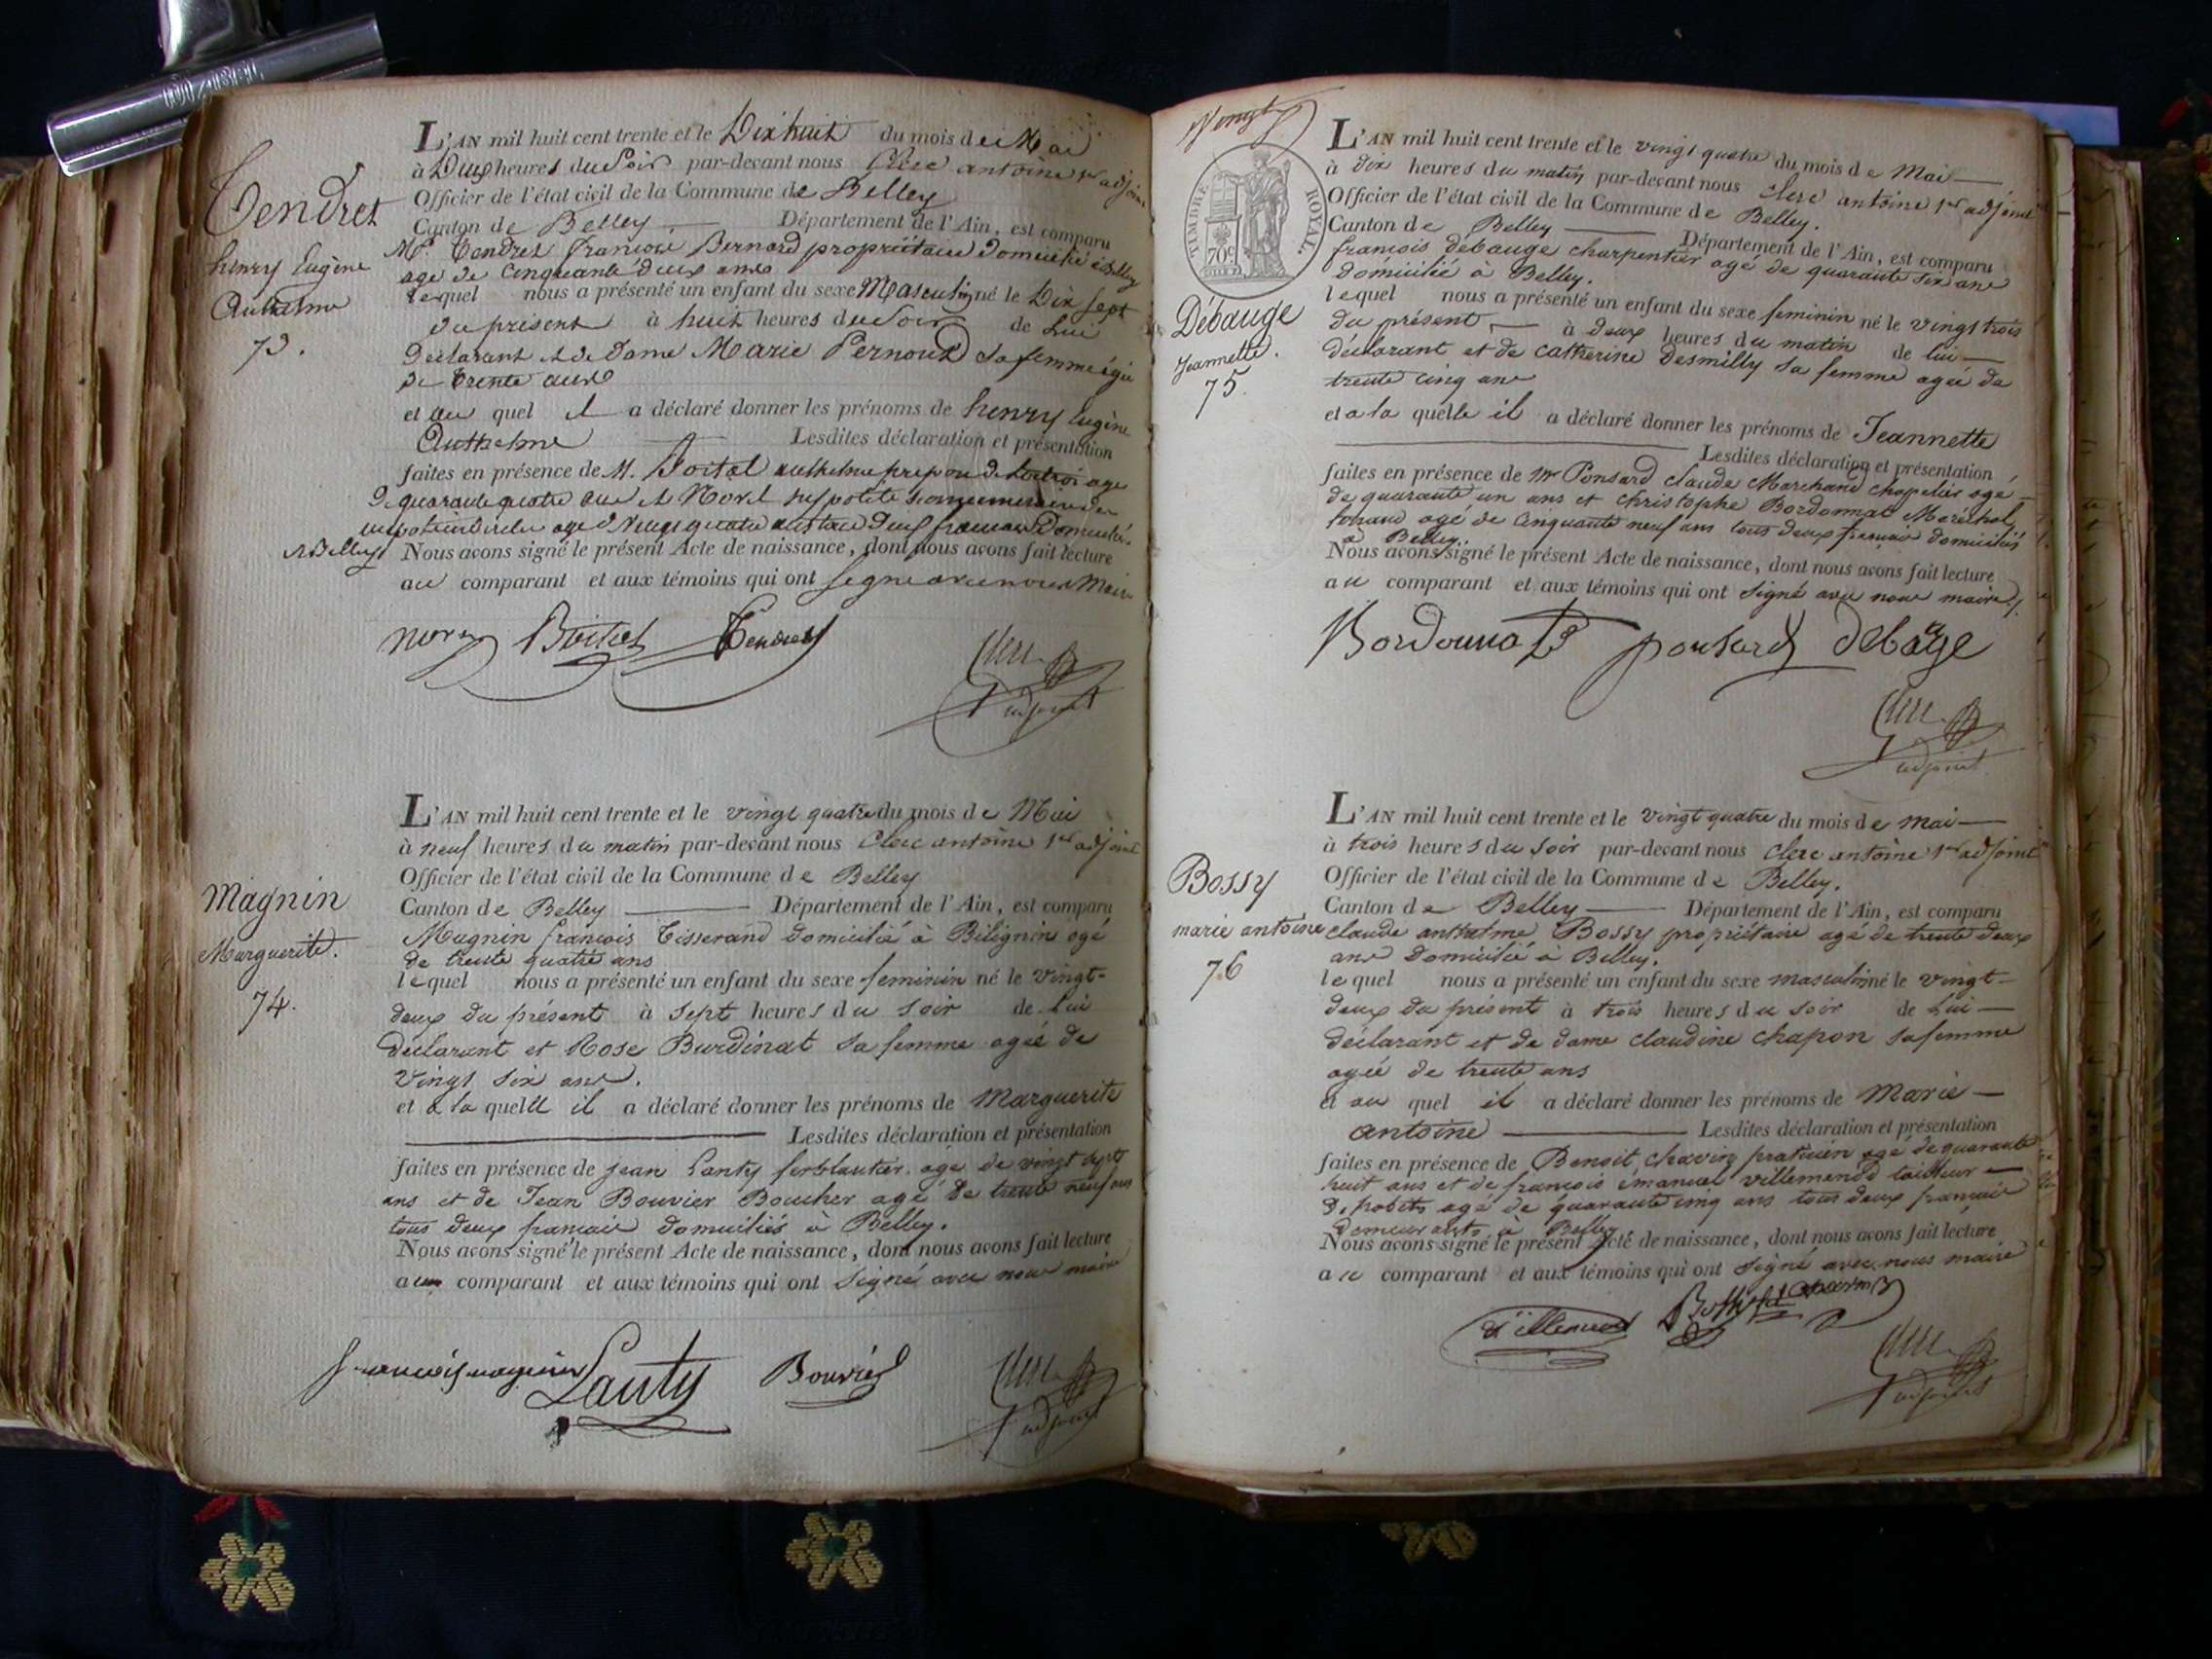 Tendret
henry Eugène
Anthelme
73.
L'AN mil huit cent trente et le Dix huit du mois de Mai
à Deux heures du Soir par-devant nous Clerc antoine 1er adjoint
Officier de l'état civil de la Commune de Belley
Canton de Belley Département de l'Ain, est comparu
Mr. Tendret françois Bernard propriétaire Domicilié à Belley
age de Cinquante deux ans
lequel nous a présenté un enfant du sexe Masculin né le Dix sept
du présent à huit heures du Soir de Lui
Déclarant et de Dame Marie Pernoud sa femme agée
de trente ans
et au quel il a déclaré donner les prénoms de henry Eugène
Anthelme Lesdites déclaration et présentation
faites en présence de M. Boitel anthelme age
De quarante quatre ans et Morel hyppolite
age de Vingt quatre ans tous deux francais Domiciliés
à Belley Nous avons signé le présent Acte de naissance, dont nous avons fait lecture
au comparant et aux témoins qui ont signé avec nous Maire
Boitel Tendret
Clerc
adjoint
Magnin
Marguerite.
74.
L'AN mil huit cent trente et le vingt quatre du mois de Mai
à neuf heures du matin par-devant nous Clerc antoine 1er adjoint
Officier de l'état civil de la Commune de Belley
Canton de Belley Département de l'Ain, est comparu
Magnin françois Tisserand domicilié à Bilignin agé
de trente quatre ans
lequel nous a présenté un enfant du sexe feminin né le vingt-
deux du présent à sept heures du soir de Lui
Déclarant et Rose Burdinat sa femme agée de
Vingt six ans.
et à la quelle il a déclaré donner les prénoms de Marguerite
Lesdites déclaration et présentation
faites en présence de jean Lanty ferblantier agé de vingt sept
ans et de Jean Bouvier Boucher agé de trente neuf ans
tous deux francais domiciliés à Belley.
Nous avons signé le présent Acte de naissance, dont nous avons fait lecture
au comparant et aux témoins qui ont signé avec nous maire
francois magnin Lanty Bouvier
Clerc
adjoint
TIMBRE ROYAL.
70c
Débauge
Jeannette.
75.
L'AN mil huit cent trente et le vingt quatre du mois de Mai
à dix heures du matin par-devant nous Clerc antoine 1er adjoint
Officier de l'état civil de la Commune de Belley.
Canton de Belley Département de l'Ain, est comparu
francois débauge charpentier agé de quarante six ans
domicilié à Belley.
lequel nous a présenté un enfant du sexe feminin né le vingt trois
du présent à deux heures du matin de lui
déclarant et de Catherine Desmilly sa femme agée de
trente cinq ans
et a la quelle il a déclaré donner les prénoms de Jeannette
Lesdites déclaration et présentation
faites en présence de Mr Ponsard claude Marchand chapelier agé
de quarante un ans et christophe Bordonnat Maréchal
ferrand agé de Cinquante neuf ans tous deux francais domiciliés
à Belley.
Nous avons signé le présent Acte de naissance, dont nous avons fait lecture
au comparant et aux témoins qui ont signé avec nous maire
Bordonnat ponsard debauge
Clerc
adjoint
Bossy
marie antoine
76
L'AN mil huit cent trente et le vingt quatre du mois de mai
à trois heures du soir par-devant nous clerc antoine 1er adjoint
Officier de l'état civil de la Commune de Belley.
Canton de Belley Département de l'Ain, est comparu
Claude anthelme Bossy propriétaire agé de trente deux
ans domicilié à Belley.
lequel nous a présenté un enfant du sexe masculin né le vingt-
deux du présent à trois heures du soir de Lui
déclarant et de dame claudine chapon sa femme
agée de trente ans
et au quel il a déclaré donner les prénoms de Marie
antoine Lesdites déclaration et présentation
faites en présence de Benoit chavin praticien agé de quarante
huit ans et de françois émanuel villemend tailleur
d'habits agé de quarante cinq ans tous deux francais
demeurants à Belley
Nous avons signé le présent Acte de naissance, dont nous avons fait lecture
au comparant et aux témoins qui ont signé avec nous maire
Clerc
adjoint